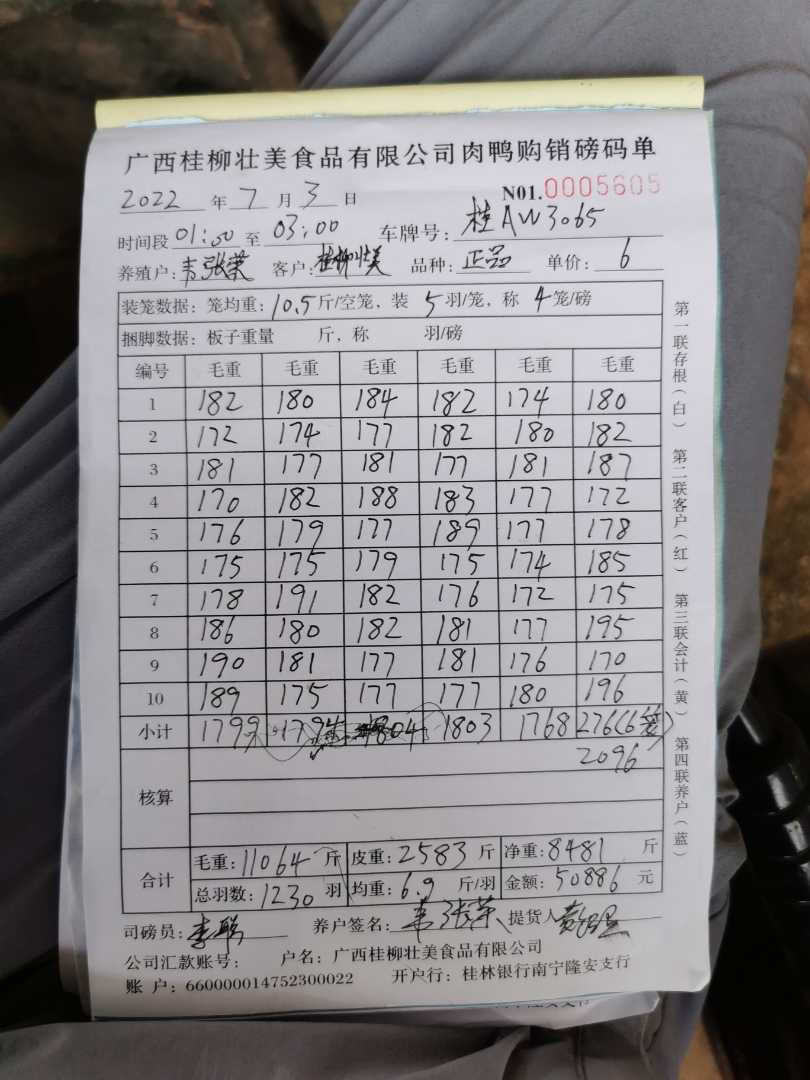 广西桂柳壮美食品有限公司肉鸭购销磅码单
2022 年 7 月 3 日 N01.0005605
时间段 01:00 至 03:00 车牌号: 桂AW3065
养殖户: 韦张荣 客户: 桂柳壮美 品种: 正品 单价: 6
装笼数据: 笼均重: 10.5 斤/空笼, 装 5 羽/笼, 称 4 笼/磅
捆脚数据: 板子重量 斤, 称 羽/磅
编号 毛重 毛重 毛重 毛重 毛重 毛重
1 182 180 184 182 174 180
2 172 174 177 182 180 182
3 181 177 181 177 181 187
4 170 182 188 183 177 172
5 176 179 177 189 177 178
6 175 175 179 175 174 185
7 178 191 182 176 172 175
8 186 180 182 181 177 195
9 190 181 177 181 176 170
10 189 175 177 177 180 196
小计 1799 1794 1804 1803 1768 276(6笼)
2096
核算
合计 毛重: 11064 斤 皮重: 2583 斤 净重: 8481 斤
总羽数: 1230 羽 均重: 6.9 斤/羽 金额: 50886 元
司磅员: 养户签名: 韦张荣 提货人
公司汇款账号: 户名: 广西桂柳壮美食品有限公司
账 户: 660000014752300022 开户行: 桂林银行南宁隆安支行
第一联存根(白) 第二联客户(红) 第三联会计(黄) 第四联养户(蓝)